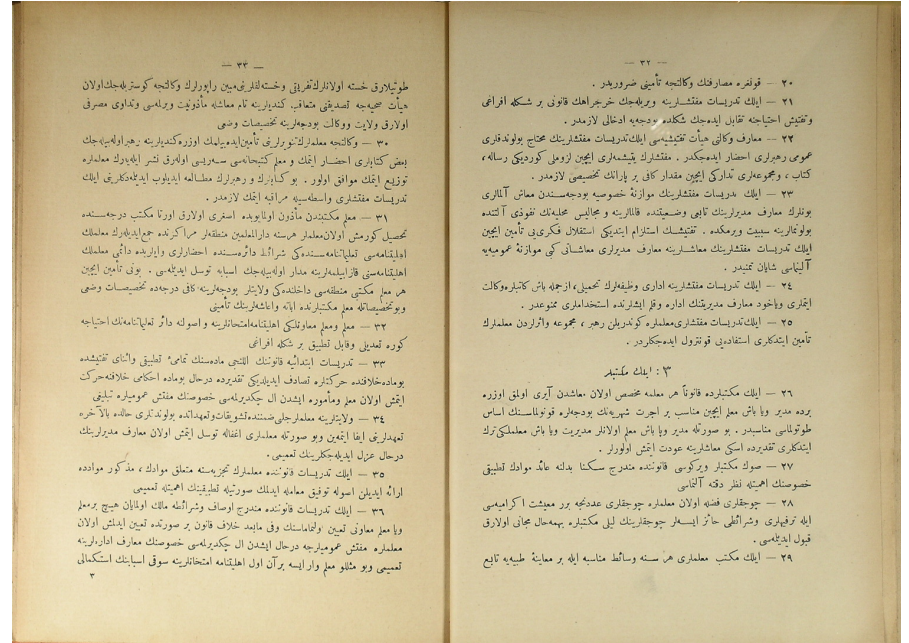 — ٣٢ —
٢٠ — قونفره مصارفنك وكالتجه تأمینی ضروریدر .
٢١ — ایلك تدریسات مفتشلرینه ویریله‌جك خرجراهك قانونی بر شكله افراغی
وتفتیش احتیاجنه تقابل ایده‌جك شكلده بودجه‌یه ادخالی لازمدر .
٢٢ — معارف وكالتی هیأت تفتیشیه‌سی ایلك تدریسات مفتشلرینك محتاج بولوندقلری
عمومی رهبرلری احضار ایده‌جكدر . مفتشلرك یتیشمه‌لری ایچین لزوملی كوردیكی رساله ،
كتاب ، ومجموعه‌لری تداركی ایچین مقدار كافی بر پارانك تخصیصی لازمدر .
٢٣ — ایلك تدریسات مفتشلرینك موازنهٔ خصوصیه بودجه‌سندن معاش آلمالری
بونلرك معارف مدیرلرینك تابعی وضعیتنده قالمالرینه و مجالیس محلیه‌نك نفوذی آلتنده
بولونمالرینه سببیت ویرمكده . تفتیشك استلزام ایتدیكی استقلال فكری‌یی تأمین ایچین
ایلك تدریسات مفتشلرینك معاشلرینه معارف مدیرلری معاشاتی كبی موازنهٔ عمومیه‌یه
آلینماسی شایان تمنیدر .
٢٤ — ایلك تدریسات مفتشلرینه اداری وظیفه‌لرك تحمیلی ، ازجمله باش كاتبلره وكالت
ایتملری ویاخود معارف مدیریتنك اداره و قلم ایشلرنده استخداملری ممنوعدر .
٢٥ — ایلك تدریسات مفتشلری معلملره كوندریلن رهبر ، مجموعه واثرلردن معلملرك
تأمین ایتدكلری استفاده‌یی قونترول ایده‌جكلردر .
٣ : ایلك مكتبلر
٢٦ — ایلك مكتبلرده قانوناً هر معلمه مخصص اولان معاشدن آیری اولمق اوزره
برده مدیر ویا باش معلم ایچین مناسب بر اجرت شهریه‌نك بودجه‌لره قونولماسنك اساس
طوتولماسی مناسبدر . بو صورتله مدیر ویا باش معلم اولانلر مدیریت ویا باش معلملكی ترك
ایتدكلری تقدیرده اسكی معاشلرینه عودت ایتمش اولورلر .
٢٧ — صوك مكتبلر ویركوسی قانوننده مندرج سكنا بدلنه عائد موادك تطبیقی
خصوصنك اهمیتله نظر دقته آلنماسی
٢٨ — چوجقلری فضله اولان معلملره چوجقلری عددنجه برر معیشت اكرامیه‌سی
ایله ترفیهلری وشرائطی حائز ایسه‌لر چوجقلرینك لیلی مكتبلره بهمه‌حال مجانی اولارق
قبول ایدیلمه‌سی .
٢٩ — ایلك مكتب معلملری هر سنه وسائط مناسبه ایله بر معاینهٔ طبیه‌یه تابع
— ٣٣ —
طوتیلارق خسته اولانلرك تفریقی وخسته‌لقلرینی مبین راپورلرك وكالتجه كوستریله‌جك اولان
هیأت صحیه‌جه تصدیقنی متعاقب كندیلرینه تام معاشله مأذونیت ویرلمه‌سی وتداوی مصرفی
اولارق ولایت ووكالت بودجه‌لرینه تخصیصات وضعی
٣٠ — وكالتجه معلملرك تنورلرینی تأمین ایده‌بیلمك اوزره كندیلرینه رهبر اوله‌بیله‌جك
بعض كتابلری احضار ایتمك و معلم كتبخانه‌سی سه‌ریسی اوله‌رق نشر ایله‌یه‌رك معلملره
توزیع ایتمك موافق اولور . بو كتابلرك و رهبرلرك مطالعه ایدیلوب ایدیلمه‌دكلرینی ایلك
تدریسات مفتشلری واسطه‌سیله مراقبه ایتمك لازمدر .
٣١ — معلم مكتبندن مأذون اولمایوبده اصغری اولارق اورتا مكتب درجه‌سنده
تحصیل كورمش اولان معلملر هر سنه دارالمعلمین منطقه‌لر مراكزنده جمع ایدیله‌رك معلملك
اهلیتنامه‌سی تعلیماتنامه‌سنده‌كی شرائط دائره‌سنده احضارلری وایلریده دائمی معلملك
اهلیتنامه‌سنی قازانمه‌لرینه مدار اوله‌بیله‌جك اسبابه توسل ایدیلمه‌سی . بونی تأمین ایچین
هر معلم مكتبی منطقه‌سی داخلنده‌كی ولایتلر بودجه‌لرینه كافی درجه‌ده تخصیصات وضعی
وبو تخصیصاتله معلم مكتبلرنده اباته واعاشه‌لرینك تأمینی
٣٢ — معلم ومعلم معاونلكی اهلیتنامه امتحانلرینه و اصولنه دائر تعلیماتنامه‌نك احتیاجه
كوره تعدیلی وقابل تطبیق بر شكله افراغی
٣٣ — تدریسات ابتدائیه قانوننك اللنجی ماده‌سنك تمامیٔ تطبیقی واثنای تفتیشده
بوماده خلافنده حركتلره تصادف ایدیلدیكی تقدیرده درحال بوماده احكامی خلافنه حركت
ایتمش اولان معلم ومأموره ایشدن ال چكدیرلمه‌سی خصوصنك مفتش عمومیلره تبلیغی
٣٤ — ولایتلرینه معلم جلبی ضمننده تشویقات وتعهداتده بولوندقلری حالده بالآخره
تعهدلرینی ایفا ایتمه‌ین وبو صورتله معلملری اغفاله توسل ایتمش اولان معارف مدیرلرینك
درحال عزل ایدیله‌جكلرینك تعمیمی .
٣٥ — ایلك تدریسات قانوننده معلملرك تجزیه‌سنه متعلق موادك ، مذكور مواده
ارائه ایدیلن اصوله توفیق معامله ایدلمك صورتیله تطبیقنك اهمیتله تعمیمی
٣٦ — ایلك تدریسات قانوننده مندرج اوصاف وشرائطه مالك اولمایان هیچ بر معلم
ویا معلم معاونی تعیین اولنماماسنك وفی مابعد خلاف قانون بر صورتده تعیین ایدلمش اولان
معلملره مفتش عمومیلرجه درحال ایشدن ال چكدیرلمه‌سی خصوصنك معارف اداره‌لرینه
تعمیمی وبو مثللو معلم وار ایسه بر آن اول اهلیتنامه امتحانلرینه سوقی اسبابنك استكمالی
٣